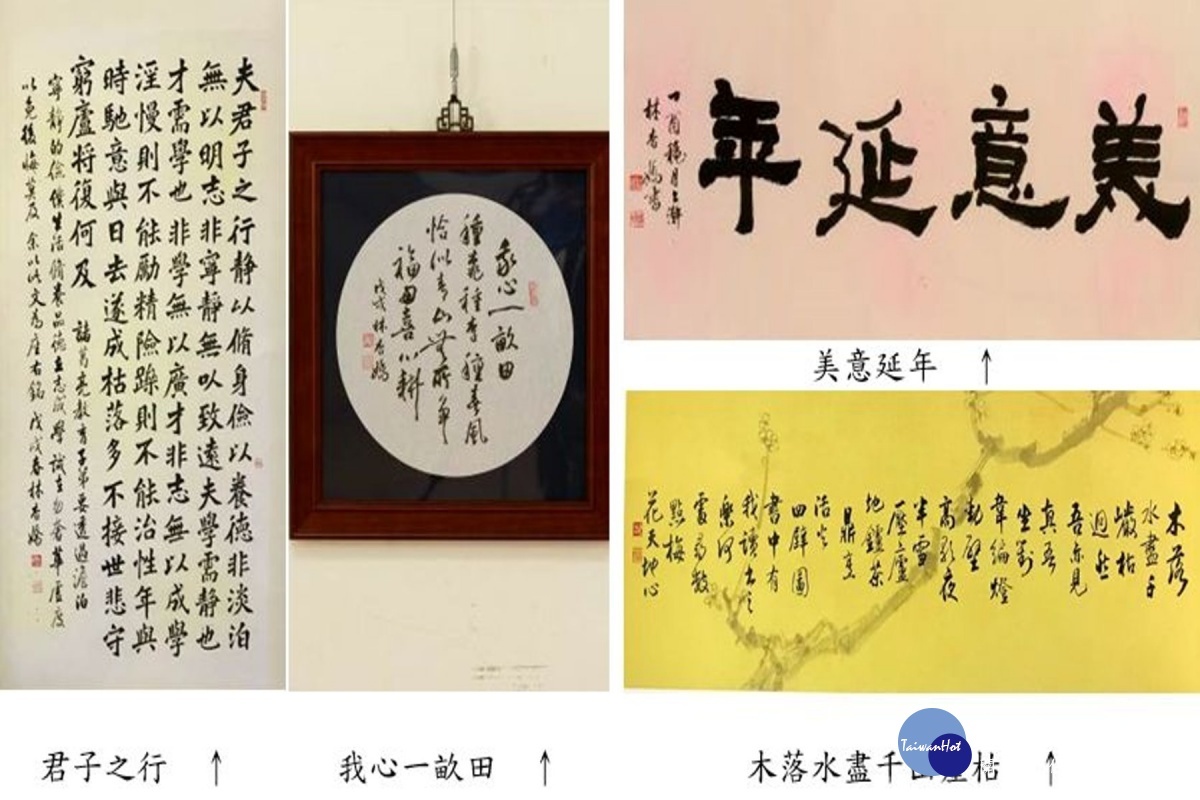 夫君子之行静以脩身儉以養德非淡泊
無以明志非寧靜無以致遠夫學需静也
才需學也非學無以廣才非志無以成學
淫慢則不能勵精險躁則不能治性年與
時馳意與日去遂成枯落多不接世悲守
窮廬將復何及 諸葛亮教育子弟要透過澹泊
寧靜的儉僕生活脩養品德立志成學誡勿奢華虛度
以免後悔莫及 余以此文為座右銘 戊戌春林杏嬌
君子之行 ↑
我心一畝田
種桃種李種春風
恰似青山無所爭
福田喜心耕
戊戌林杏嬌
我心一畝田 ↑
美意延年
丁酉穐月上澣
林杏嬌書
美意延年 ↑
木落
水盡千
巖枯
迥然
吾亦見
真吾
坐對
韋編燈
動壁
高歌夜
半雪
壓廬
地爐茶
鼎烹
活火
四壁圖
書中有
我讀書之
樂何
處尋數
點梅
花天地心
木落水盡千崖枯 ↑
TaiwanHot